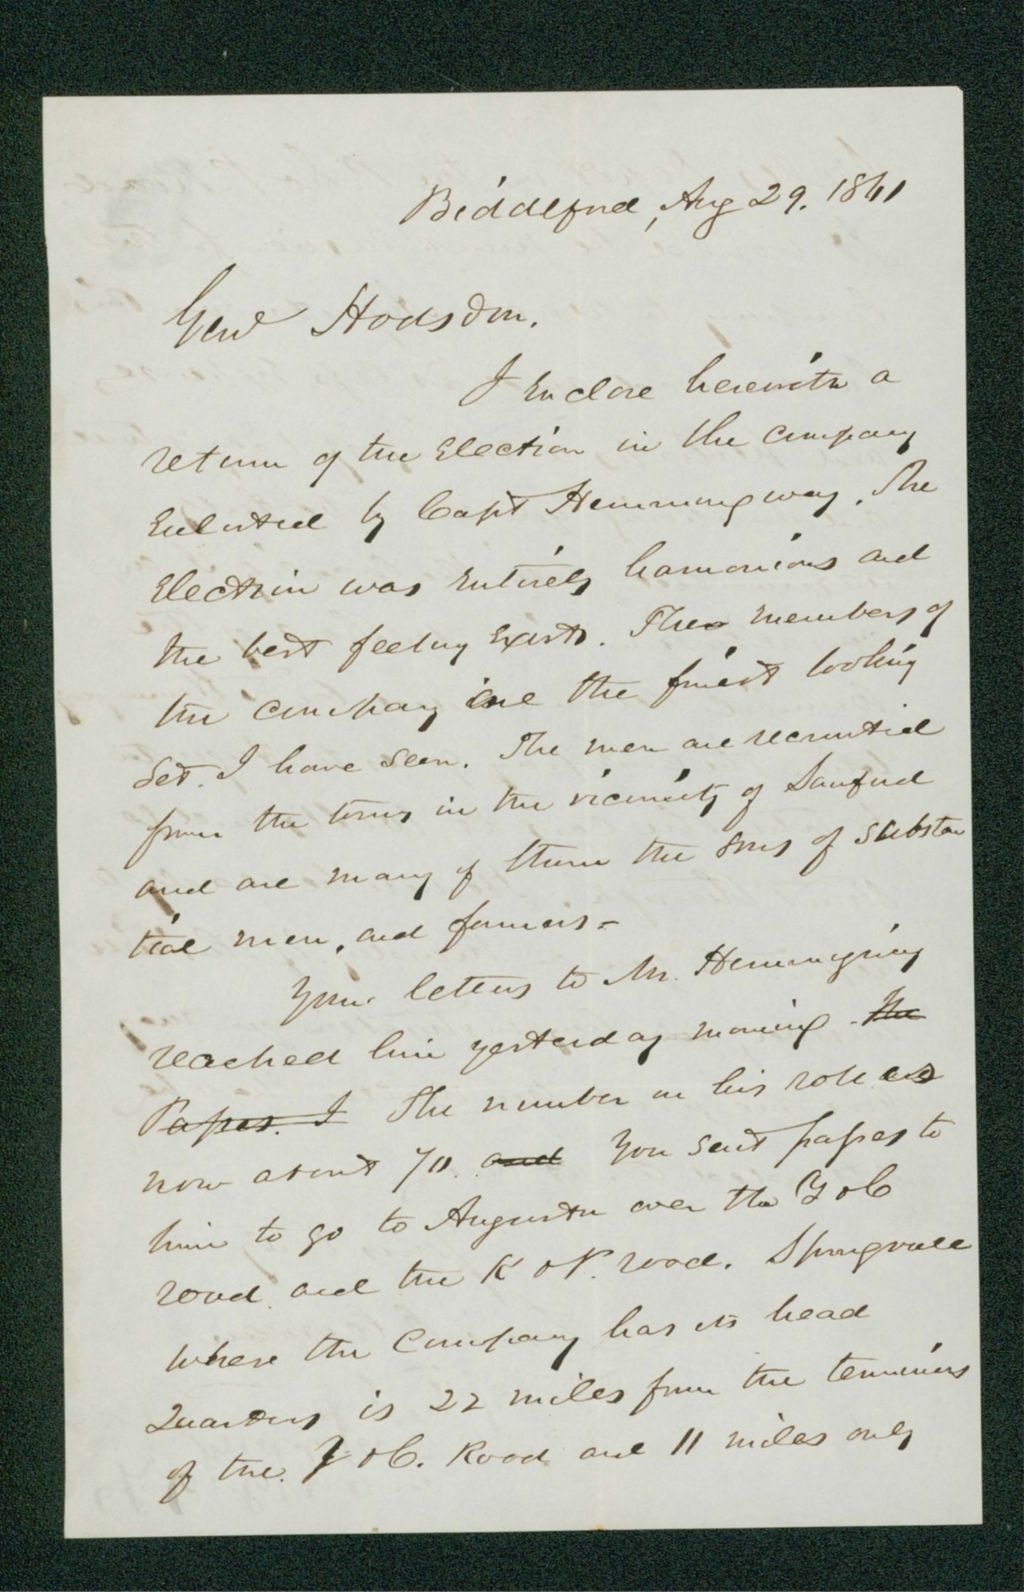 Biddeford, Aug 29. 1861
Genl Hodsdon.
I Enclose herewith a
return of the Election in the Company
Enlisted by Capt Hemmingway. The
Election was Entirely harmonious and
the best feeling Exists. The members of
the company are the finest looking
Set. I have seen. The men are recruited
from the towns in the vicinity of Sanford
and are many of them the sons of substan
tial men, and farmers -
Your letters to Mr. Hemmingway
reached him yesterday morning. The
Papers. I The number on his roll is
now about 70. and You sent papers to
him to go to Augusta over the Y & C
road and the K & P. road. Springvale
where the Company has its head
Quarters is 22 miles from the terminus
of the Y & C. Road and 11 miles only